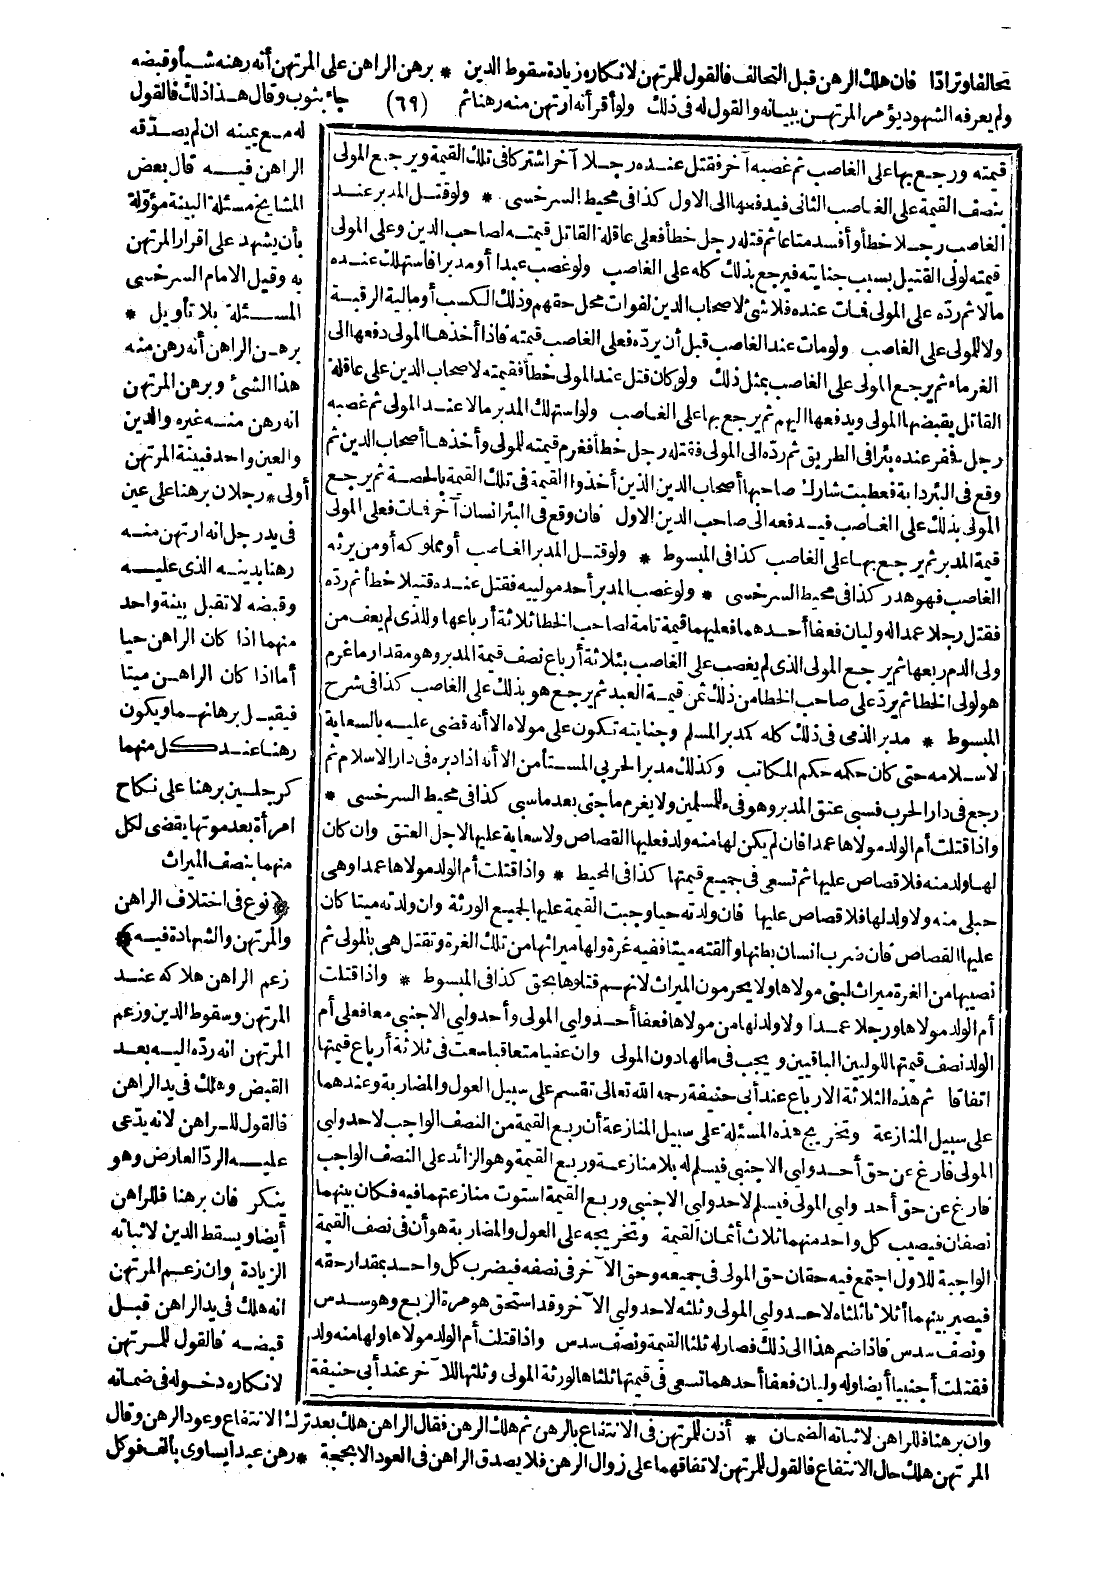 تحالفا وترادّا فان هلك الرهن قبل التحالف فالقول للمرتهن لانكاره زيادة سقوط الدين * برهن الراهن على المرتهن أنه رهنه شيأ وقبضه
ولم يعرفه الشهود يؤمر المرتهن ببيانه والقول له فى ذلك ولو أقر أنه ارتهن منه رهنا ثم (٦٩) جاء بثوب وقال هذا ذلك فالقول
له مع يمينه ان لم يصدّقه
الراهن فيه قال بعض
المشايخ مسئلة البينة مؤوّلة
بأن يشهد على اقرار المرتهن
به وقيل الامام السرخسى
المسئلة بلا تأويل *
برهن الراهن أنه رهن منه
هذا الشئ وبرهن المرتهن
انه رهن منه غيره والدين
والعين واحد فبينة المرتهن
أولى * رجلان برهنا على عين
فى يد رجل انه ارتهن منه
رهنا بدينه الذى عليه
وقبضه لا تقبل بينة واحد
منهما اذا كان الراهن حيا
أما اذا كان الراهن ميتا
فيقبل برهانهما ويكون
رهنا عند كل منهما
كرجلين برهنا على نكاح
امرأة بعد موتها يقضى لكل
منهما بنصف الميراث
﴿نوع فى اختلاف الراهن
والمرتهن والشهادة فيه﴾
زعم الراهن هلاكه عند
المرتهن وسقوط الدين وزعم
المرتهن انه ردّه اليه بعد
القبض وهلك فى يد الراهن
فالقول للراهن لانه يدّعى
عليه الردّ العارض وهو
ينكر فان برهنا فللراهن
أيضا ويسقط الدين لاثباته
الزيادة وان زعم المرتهن
انه هلك فى يد الراهن قبل
قبضه فالقول للمرتهن
لانكاره دخوله فى ضمانه
وان برهنا فللراهن لاثباته الضمان * أذن للمرتهن فى الانتفاع بالرهن ثم هلك الرهن فقال الراهن هلك بعد ترك الانتفاع وعود الرهن وقال
المرتهن هلك حال الانتفاع فالقول للمرتهن لاتفاقهما على زوال الرهن فلا يصدق الراهن فى العود الا بحجة * رهن عبدا يساوى بألف فوكل
قيمته ورجع بها على الغاصب ثم غصبه آخر فقتل عنده رجلا آخر اشتركا فى تلك القيمة ويرجع المولى
بنصف القيمة على الغاصب الثانى فيدفعها الى الاول كذا فى محيط السرخسى * ولو قتل المدبر عند
الغاصب رجلا خطأ وأفسد متاعا ثم قتله رجل خطأ فعلى عاقلة القاتل قيمته لصاحب الدين وعلى المولى
قيمته لولى القتيل بسبب جنايته فيرجع بذلك كله على الغاصب ولو غصب عبدا أو مدبرا فاستهلك عنده
مالا ثم ردّه على المولى فمات عنده فلا شئ لاصحاب الدين لفوات محل حقهم وذلك الكسب أو مالية الرقبة
ولا للمولى على الغاصب ولو مات عند الغاصب قبل أن يردّه فعلى الغاصب قيمته فاذا أخذها المولى دفعها الى
الغرماء ثم يرجع المولى على الغاصب بمثل ذلك ولو كان قتل عند المولى خطأ فقيمته لاصحاب الدين على عاقلة
القاتل يقبضها المولى ويدفعها اليهم ثم يرجع بها على الغاصب ولو استهلك المدبر مالا عند المولى ثم غصبه
رجل فحفر عنده بئرا فى الطريق ثم ردّه الى المولى فقتله رجل خطأ فغرم قيمته للمولى وأخذها أصحاب الدين ثم
وقع فى البئر دابة فعطبت شارك صاحبها أصحاب الدين الذين أخذوا القيمة فى تلك القيمة بالحصة ثم يرجع
المولى بذلك على الغاصب فيدفعه الى صاحب الدين الاول فان وقع فى البئر انسان آخر فمات فعلى المولى
قيمة المدبر ثم يرجع بها على الغاصب كذا فى المبسوط * ولو قتل المدبر الغاصب أو مملوكه أو من يرثه
الغاصب فهو هدر كذا فى محيط السرخسى * ولو غصب المدبر أحد مولييه فقتل عنده قتيلا خطأ ثم ردّه
فقتل رجلا عمدا له وليان فعفا أحدهما فعليهما قيمة تامة لصاحب الخطا ثلاثة أرباعها وللذى لم يعف من
ولى الدم ربعها ثم يرجع المولى الذى لم يغصب على الغاصب بثلاثة أرباع نصف قيمة المدبر وهو مقدار ما غرم
هو لولى الخطا ثم يردّ على صاحب الخطا من ذلك ثمن قيمة العبد ثم يرجع هو بذلك على الغاصب كذا فى شرح
المبسوط * مدبر الذمى فى ذلك كله كمدبر المسلم وجنايته تكون على مولاه الا أنه قضى عليه بالسعاية
لاسلامه حتى كان حكمه حكم المكاتب وكذلك مدبر الحربى المستأمن الا أنه اذا دبره فى دار الاسلام ثم
رجع فى دار الحرب فسبى عتق المدبر وهو فىء للمسلمين ولا يغرم ما جنى بعد ما سبى كذا فى محيط السرخسى *
واذا قتلت أم الولد مولاها عمدا فان لم يكن لها منه ولد فعليها القصاص ولا سعاية عليها لاجل العتق وان كان
لها ولد منه فلا قصاص عليها ثم تسعى فى جميع قيمتها كذا فى المحيط * واذا قتلت أم الولد مولاها عمدا وهى
حبلى منه ولا ولد لها فلا قصاص عليها فان ولدته حيا وجبت القيمة عليها لجميع الورثة وان ولدته ميتا كان
عليها القصاص فان ضرب انسان بطنها وألقته ميتا ففيه غرة ولها ميراثها من تلك الغرة وتقتل هى بالمولى ثم
نصيبها من الغرة ميراث لبنى مولاها ولا يحرمون الميراث لانهم قتلوها بحق كذا فى المبسوط * واذا قتلت
أم الولد مولاها ورجلا عمدا ولا ولد لها من مولاها فعفا أحد وليى المولى وأحد وليى الاجنبى معا فعلى أم
الولد نصف قيمتها للوليين الباقيين ويجب فى مالها دون المولى وان عفيا متعاقبا سعت فى ثلاثة أرباع قيمتها
اتفاقا ثم هذه الثلاثة الارباع عند أبى حنيفة رحمه الله تعالى تقسم على سبيل العول والمضاربة وعندهما
على سبيل المنازعة وتخريج هذه المسئلة على سبيل المنازعة أن ربع القيمة من النصف الواجب لاحد وليى
المولى فارغ عن حق أحد وليى الاجنبى فيسلم له بلا منازعة وربع القيمة وهو الزائد على النصف الواجب
فارغ عن حق أحد وليى المولى فيسلم لاحد وليى الاجنبى وربع القيمة استوت منازعتهما فيه فكان بينهما
نصفان فيصيب كل واحد منهما ثلاث أثمان القيمة وتخريجه على العول والمضاربة هو أن فى نصف القيمة
الواجبة للاول اجتمع فيه حقان حق المولى فى جميعه وحق الآخر فى نصفه فيضرب كل واحد بمقدار حقه
فيصير بينهما أثلاثا ثلثاه لاحد وليى المولى وثلثه لاحد وليى الآخر وقد استحق هو مرة الربع وهو سدس
ونصف سدس فاذا ضم هذا الى ذلك فصار له ثلثا القيمة ونصف سدس واذا قتلت أم الولد مولاها ولها منه ولد
فقتلت أجنبيا أيضا وله وليان فعفا أحدهما تسعى فى قيمتها ثلثاها لورثة المولى وثلثها للآخر عند أبى حنيفة